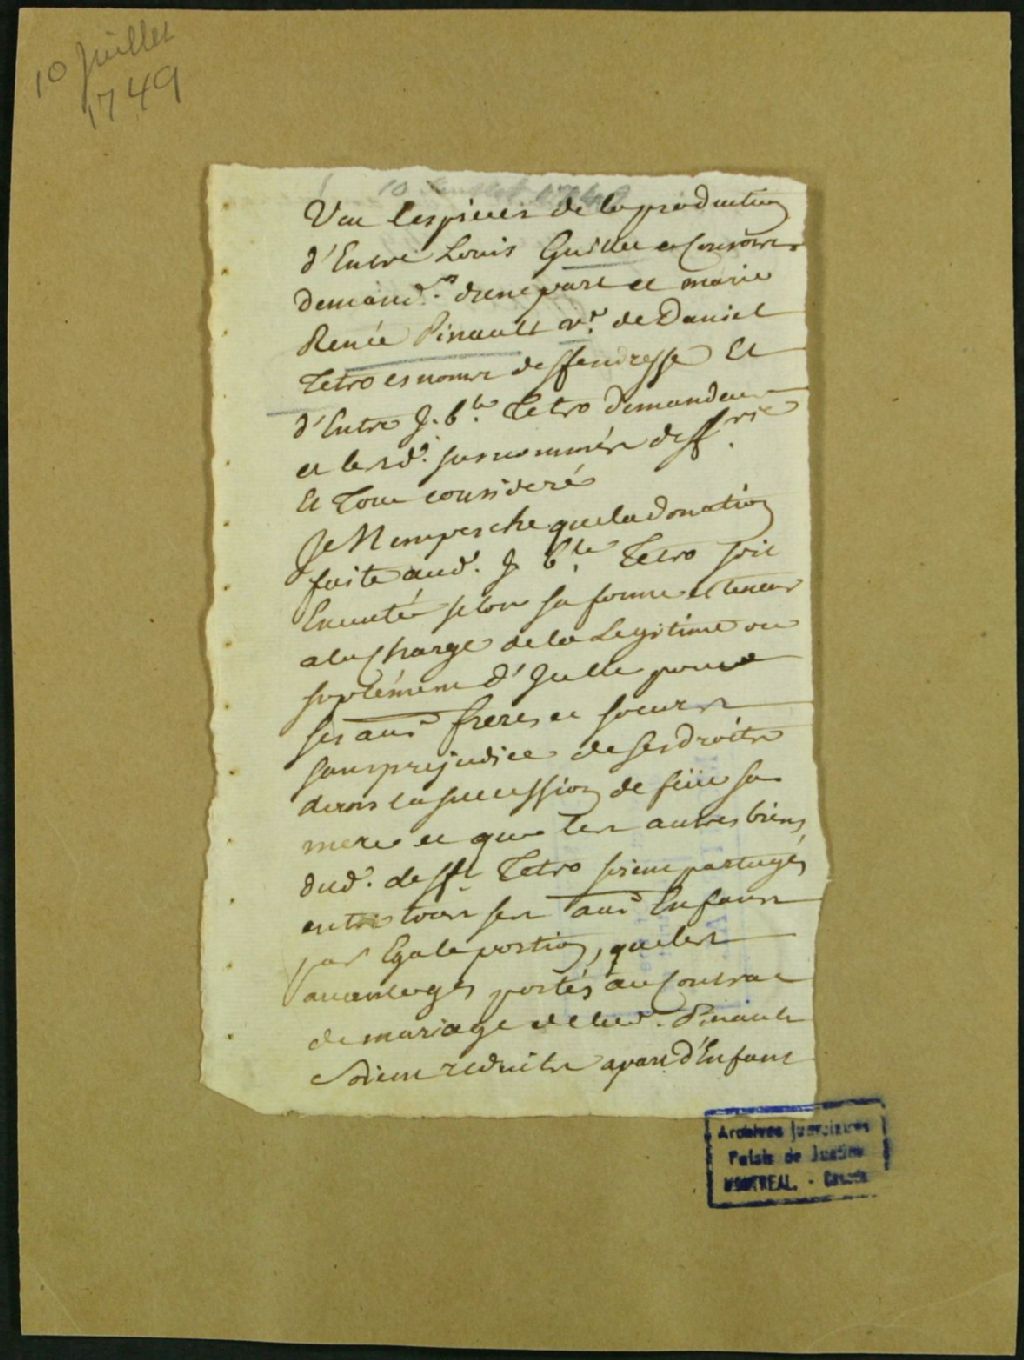 10 Juillet
1749
10 Juillet 1749
Veu les pieces de la production
d'Entre Louis Guillet et Consorts
demand.rs d'une part et marie
Renée Pinault v.e de Daniel
Tetro es noms deffendresse Et
d'Entre J. b.te Tetro demandeur
et les sd. susnommés deff.
Et Tout consideré
Je N'empesche que la donation
faite aud. J b.te Tetro soit
Executée selon sa forme et teneur
a la Charge de la Legitime ou
suplément d'Jcelle pour
ses aus. freres et soeurs
sans prejudice de ses droits
dans la succession de feüe sa
mere et que les autres biens
dud. deff.t Tetro soient partagés
entre tous ses aus. Enfans
par Egale portion, que les
avantages portés au Contrat
de mariage de lad. Pinault
soient reduits a part d'Enfant
Archives judiciaires
Palais de Justice
MONTREAL. - Canada